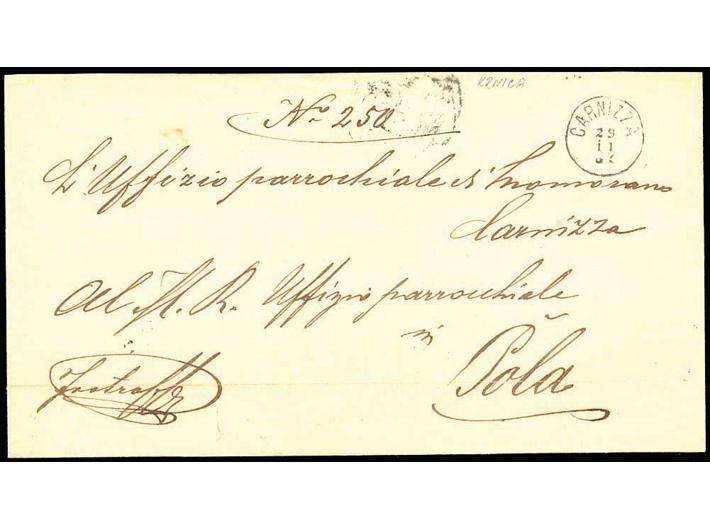 KRNICA
No 250
CARNIZZA
29
11
L'Uffizio parrochiale di Momorano
Carnizza
Al M. R. Uffizio parrocchiale
in
Pola